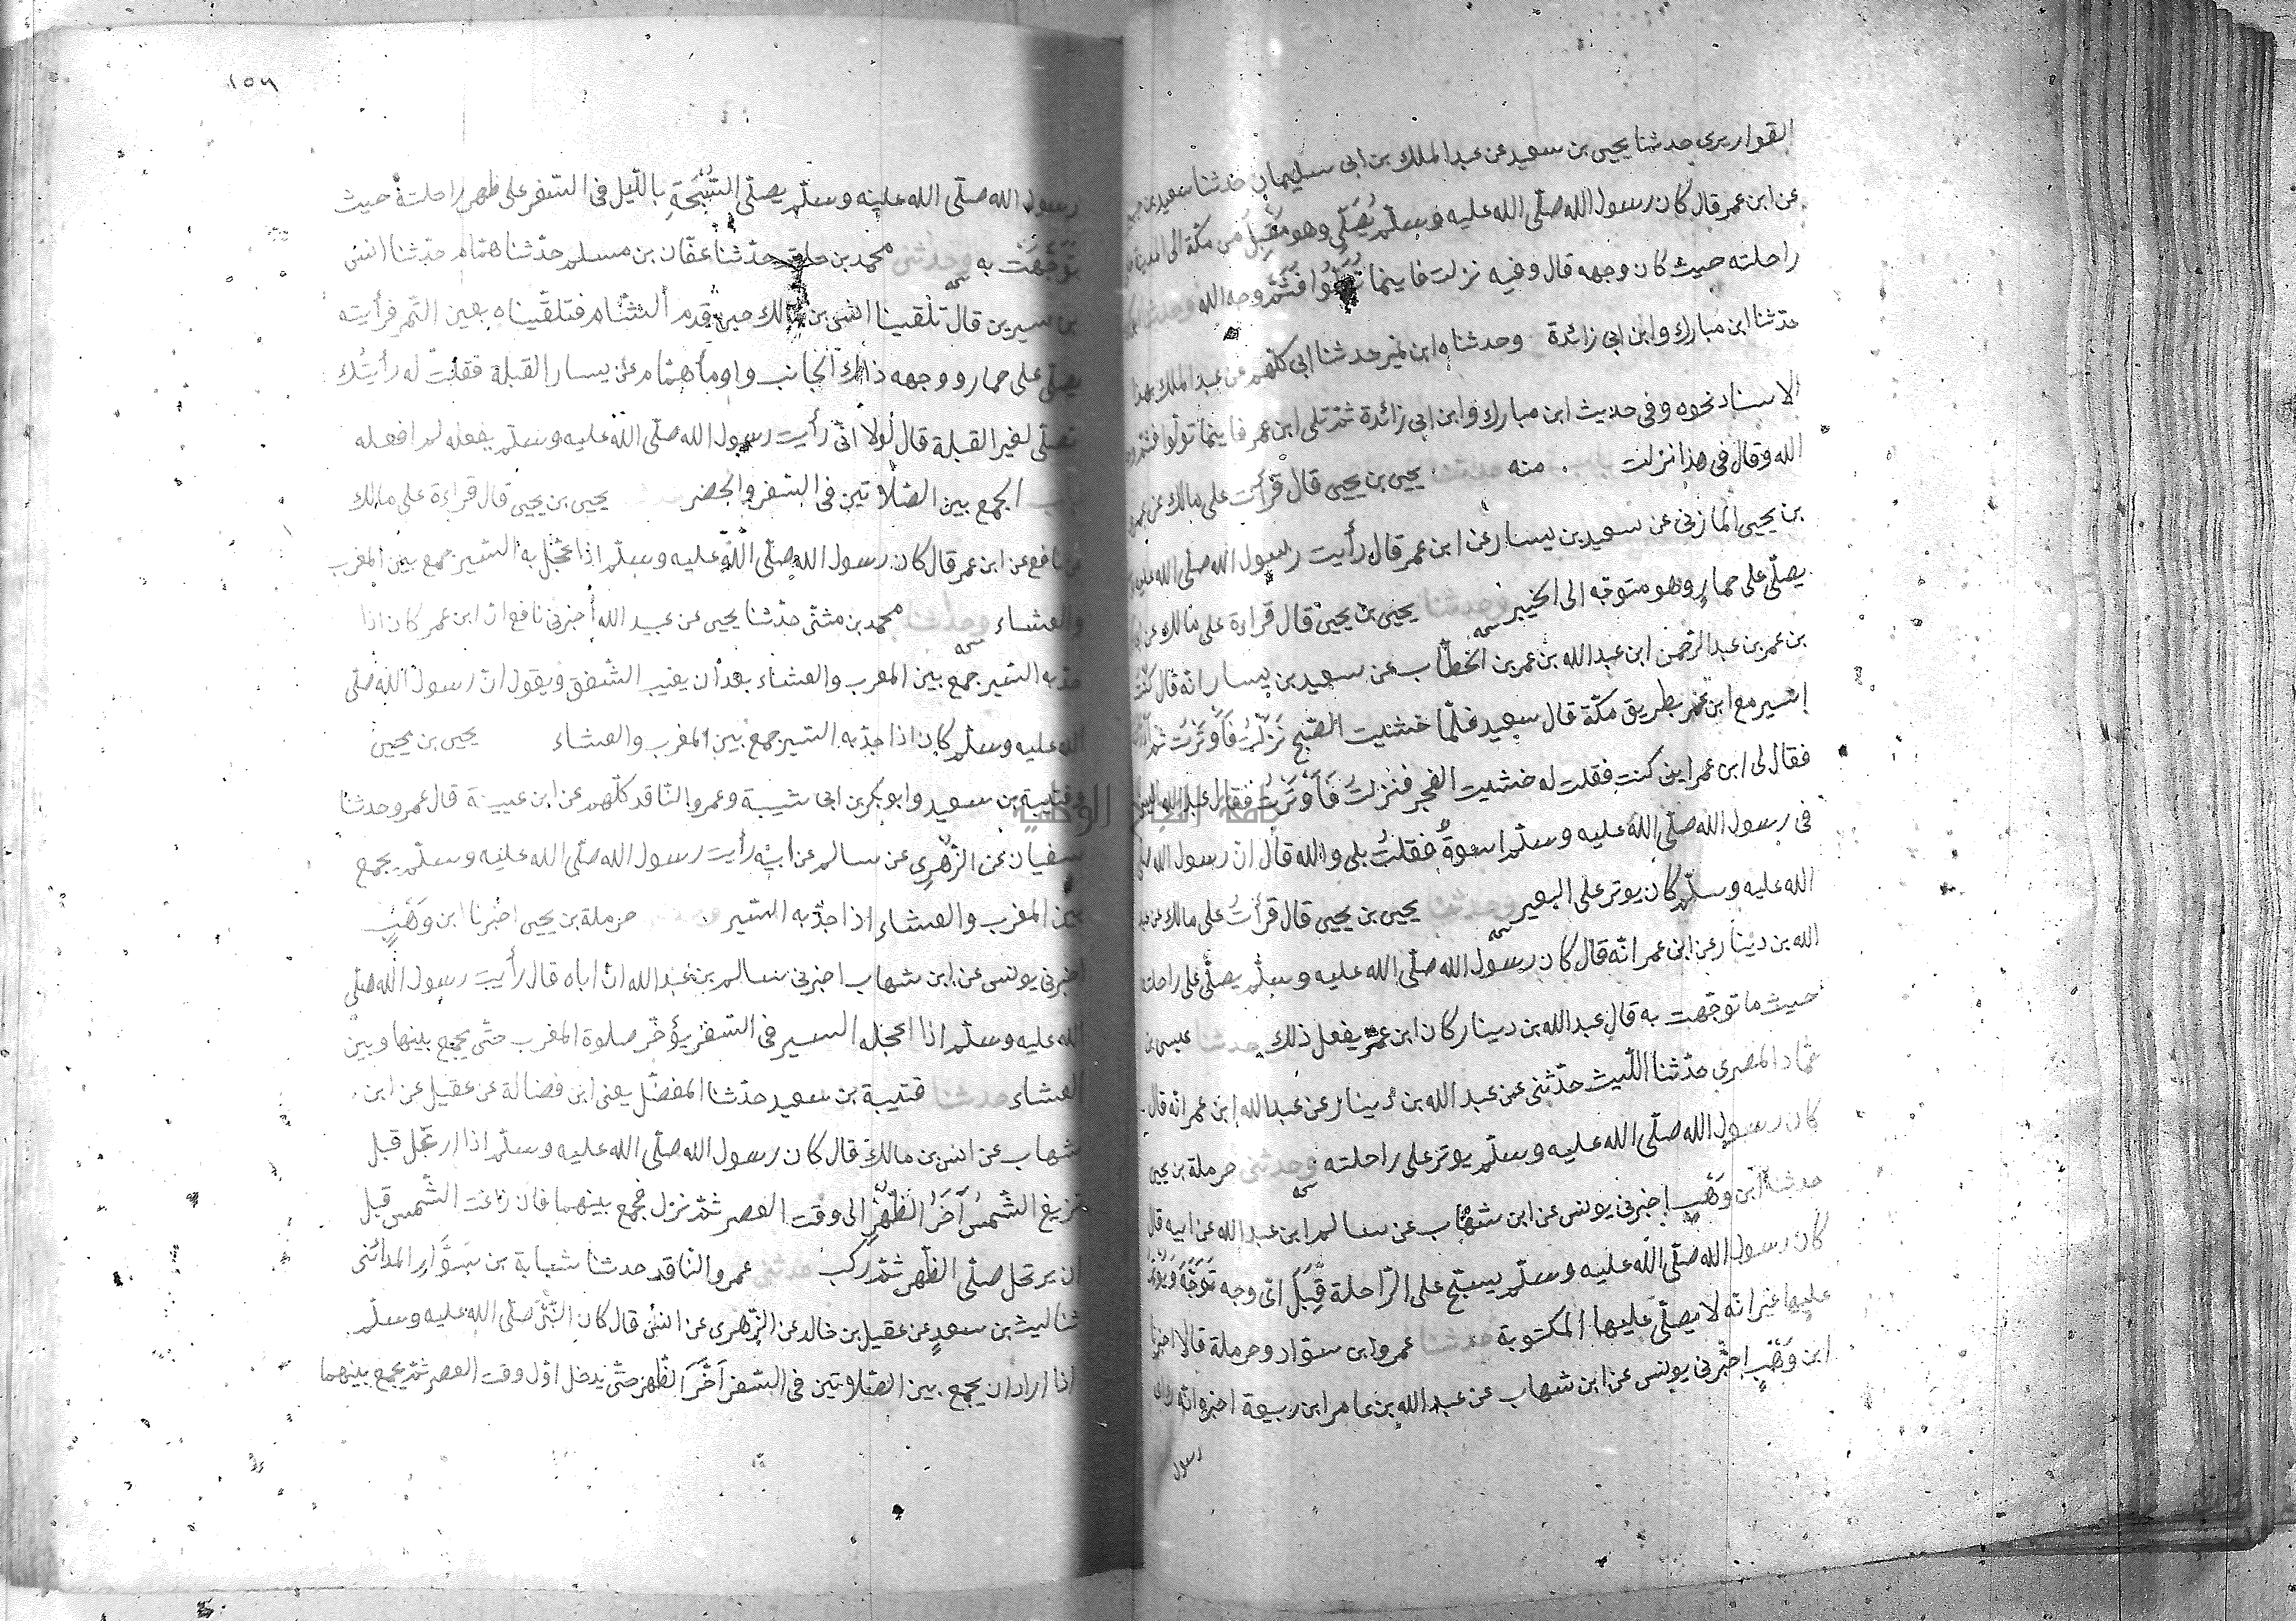 القواريرى حدثنا يحيى بن سعيد عن عبد الملك بن ابى سليمان حدثنا سعيد بن جبير
عن ابن عمر قال كان رسول الله صلّى الله عليه وسلّم يُصَلّى وهو مُقبِل من مكّة الى المدينة على
راحلته حيث كان وجهه قال وفيه نزلت فاينما تُوَلّوا فثمّ وجه الله وحدثنا ابو كريب
حدّثنا ابن مبارك وابن ابى زائدة وحدثناه ابن نمير حدثنا ابى كلّهم عن عبد الملك بهذا
الاسناد نحوه وفى حديث ابن مبارك وابن ابى زائدة ثمّ تلى ابن عمر فاينما تولّوا فثمّ وجه
الله وقال فى هذا نزلت باب منه حدثنا يحيى بن يحيى قال قرأت على مالك عن عمرو
بن يحيى المازنى عن سعيد بن يسار عن ابن عمر قال رأيت رسول الله صلّى الله عليه وسلم
يصلّى على حمارٍ وهو متوجّه الى الخيبر وحدثنا يحيى بن يحيى قال قراءة على مالك عن ابى بكر
بن عمر بن عبد الرّحمن ابن عبد الله بن عمر بن الخطّاب عن سعيد بن يسار انه قال كنت
اسير مع ابن عمر بطريق مكّة قال سعيد فلمّا خشيت الصّبح نَزَلْتُ فَأَوْتَرْتُ ثمّ ادركته
فقال لى ابن عمر اين كنت فقلت له خشيت الفجر فنزلتُ فَأَوْتَرْتُ فقال عبد الله اليس لك
فى رسول الله صلّى الله عليه وسلّم اسوةٌ فقلتُ بلى والله قال انّ رسول الله صلى
الله عليه وسلّم كان يوتر على البعير وحدثنا يحيى بن يحيى قال قرأتُ على مالك عن عبد
الله بن دينار عن ابن عمر انّه قال كان رسول الله صلّى الله عليه وسلّم يصلّى على راحلته
حيث ما توجّهت به قال عبد الله بن دينار كان ابن عمر يفعل ذلك حدثنا عيسى بن
حمّاد المصرى حدّثنا اللّيث حدّثنى عن عبد الله بن دينار عن عبد الله ابن عمر انّه قال
كان رسول الله صلّى الله عليه وسلّم يوتر على راحلته وحدثنى حرملة بن يحيى
حدثنا ابن وَهْبٍ اخبرنى يونس عن ابن شهاب عن سالم ابن عبد الله عن ابيه قال
كان رسول الله صلّى الله عليه وسلّم يسبّح على الرّاحلة قِبَلَ اىّ وجه تَوَجَّهَ وَيُوْتِرُ
عليها غير انّه لا يصلّى عليها المكتوبة حدثنا عمرو ابن سوّاد وحرملة قالا اخبرنا
ابن وَهْبٍ اخبرنى يونس عن ابن شهاب عن عبد الله بن عامر ابن ربيعة اخبره انّه رأى
رسول
١٥٦
رسول الله صلّى الله عليه وسلّم يصلّى السُّبْحَةِ باللّيل فى السّفر على ظهر راحلتهِ حيث
تَوَجَّهَت به وحدثنى محمد بن حاتم حدّثنا عفّان بن مسلم حدّثنا همّام حدّثنا انس
بن سيرين قال تلقينا انس بن مالك حين قدم الشّام فتلقّيناه بعين التّمر فرأيته
يصلّى على حمار ووجهه ذالك الجانب واومأ همّام عن يسار القبلة فقلت له رأيتُك
تصلّى لغير القبلة قال لولا انّى رأيت رسول الله صلّى الله عليه وسلّم يفعله لم افعله
باب الجمع بين الصّلاتين فى السّفر والحضر حدثنا يحيى بن يحيى قال قراءة على مالك
عن نافع عن ابن عمر قال كان رسول الله صلّى الله عليه وسلّم اذا عجّل به السّير جمع بين المغرب
والعشاء وحدثنا محمد بن مثنّى حدّثنا يحيى عن عبيد الله أخبرنى نافع انّ ابن عمر كان اذا
جدّ به السّير جمع بين المغرب والعشاء بعد أن يغيب الشّفق ويقول انّ رسول الله صلّى
الله عليه وسلّم كان اذا جدّ به السّير جمع بين المغرب والعشاء يحيى بن يحيى
وقتيبة بن سعيد وابو بكر بن ابى شيبة وعمرو النّاقد كلّهم عن ابن عيينة قال عمرو حدثنا
سفيان عن الزّهرى عن سالم عن ابيه رأيت رسول الله صلّى الله عليه وسلّم يجمع
بين المغرب والعشاء اذا جدّ به السّير حرملة بن يحيى اخبرنا ابن وَهْبٍ
اخبرنى يونس عن ابن شهاب اخبرنى سالم بن عبد الله انّ اباه قال رأيت رسول الله صلّى
الله عليه وسلّم اذا اعجله السير فى السّفر يؤخّر صلوة المغرب حتّى يجمع بينها وبين
العشاء حدثنا قتيبة بن سعيد حدّثنا المفضّل يعنى ابن فضالة عن عقيل عن ابن
شهاب عن انس بن مالك قال كان رسول الله صلّى الله عليه وسلّم اذا ارتحل قبل
تزيغ الشّمسُ أَخَّرَ الظّهر الى وقت العصر ثمّ نزل فجمع بينهما فان زاغت الشّمس قبل
ان يرتحل صلّى الظّهر ثمّ ركب حدثنى عمرو النّاقد حدثنا شبابة بن سَوَّارِ المدائنى
ثنا ليث بن سعدٍ عن عقيل بن خالد عن الزّهرى عن انس قال كان النّبىّ صلّى الله عليه وسلّم
اذا اراد ان يجمع بين الصّلاتين فى السّفر اَخَّرَ الظّهر حتّى يدخل اوّل وقت العصر ثمّ يجمع بينهما